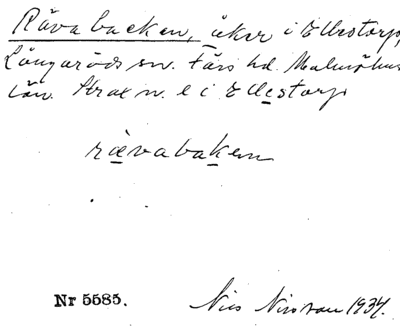 Rävabacken, åker i Ellestorp,
Långaröds sn. Färs hd. Malmöhus
län. Strax n. l i Ellestorp
rävabaken
Nr 5585. Nils Nilsson 1934.